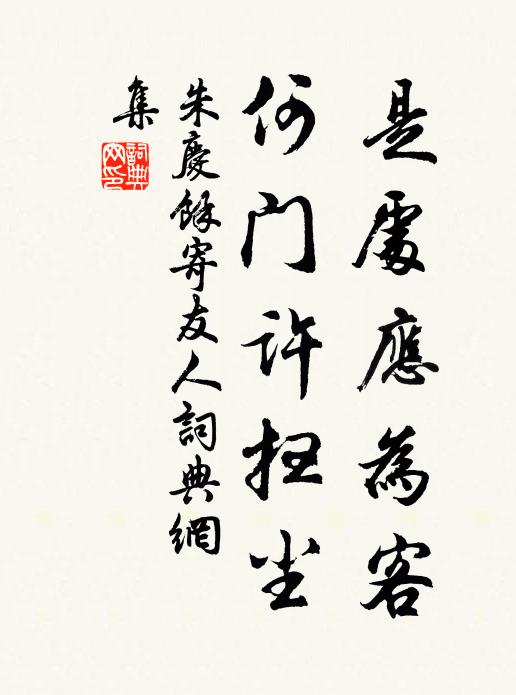 是處應為客
何門許扫尘
朱慶餘寄友人詞典網
集
詞典
网印